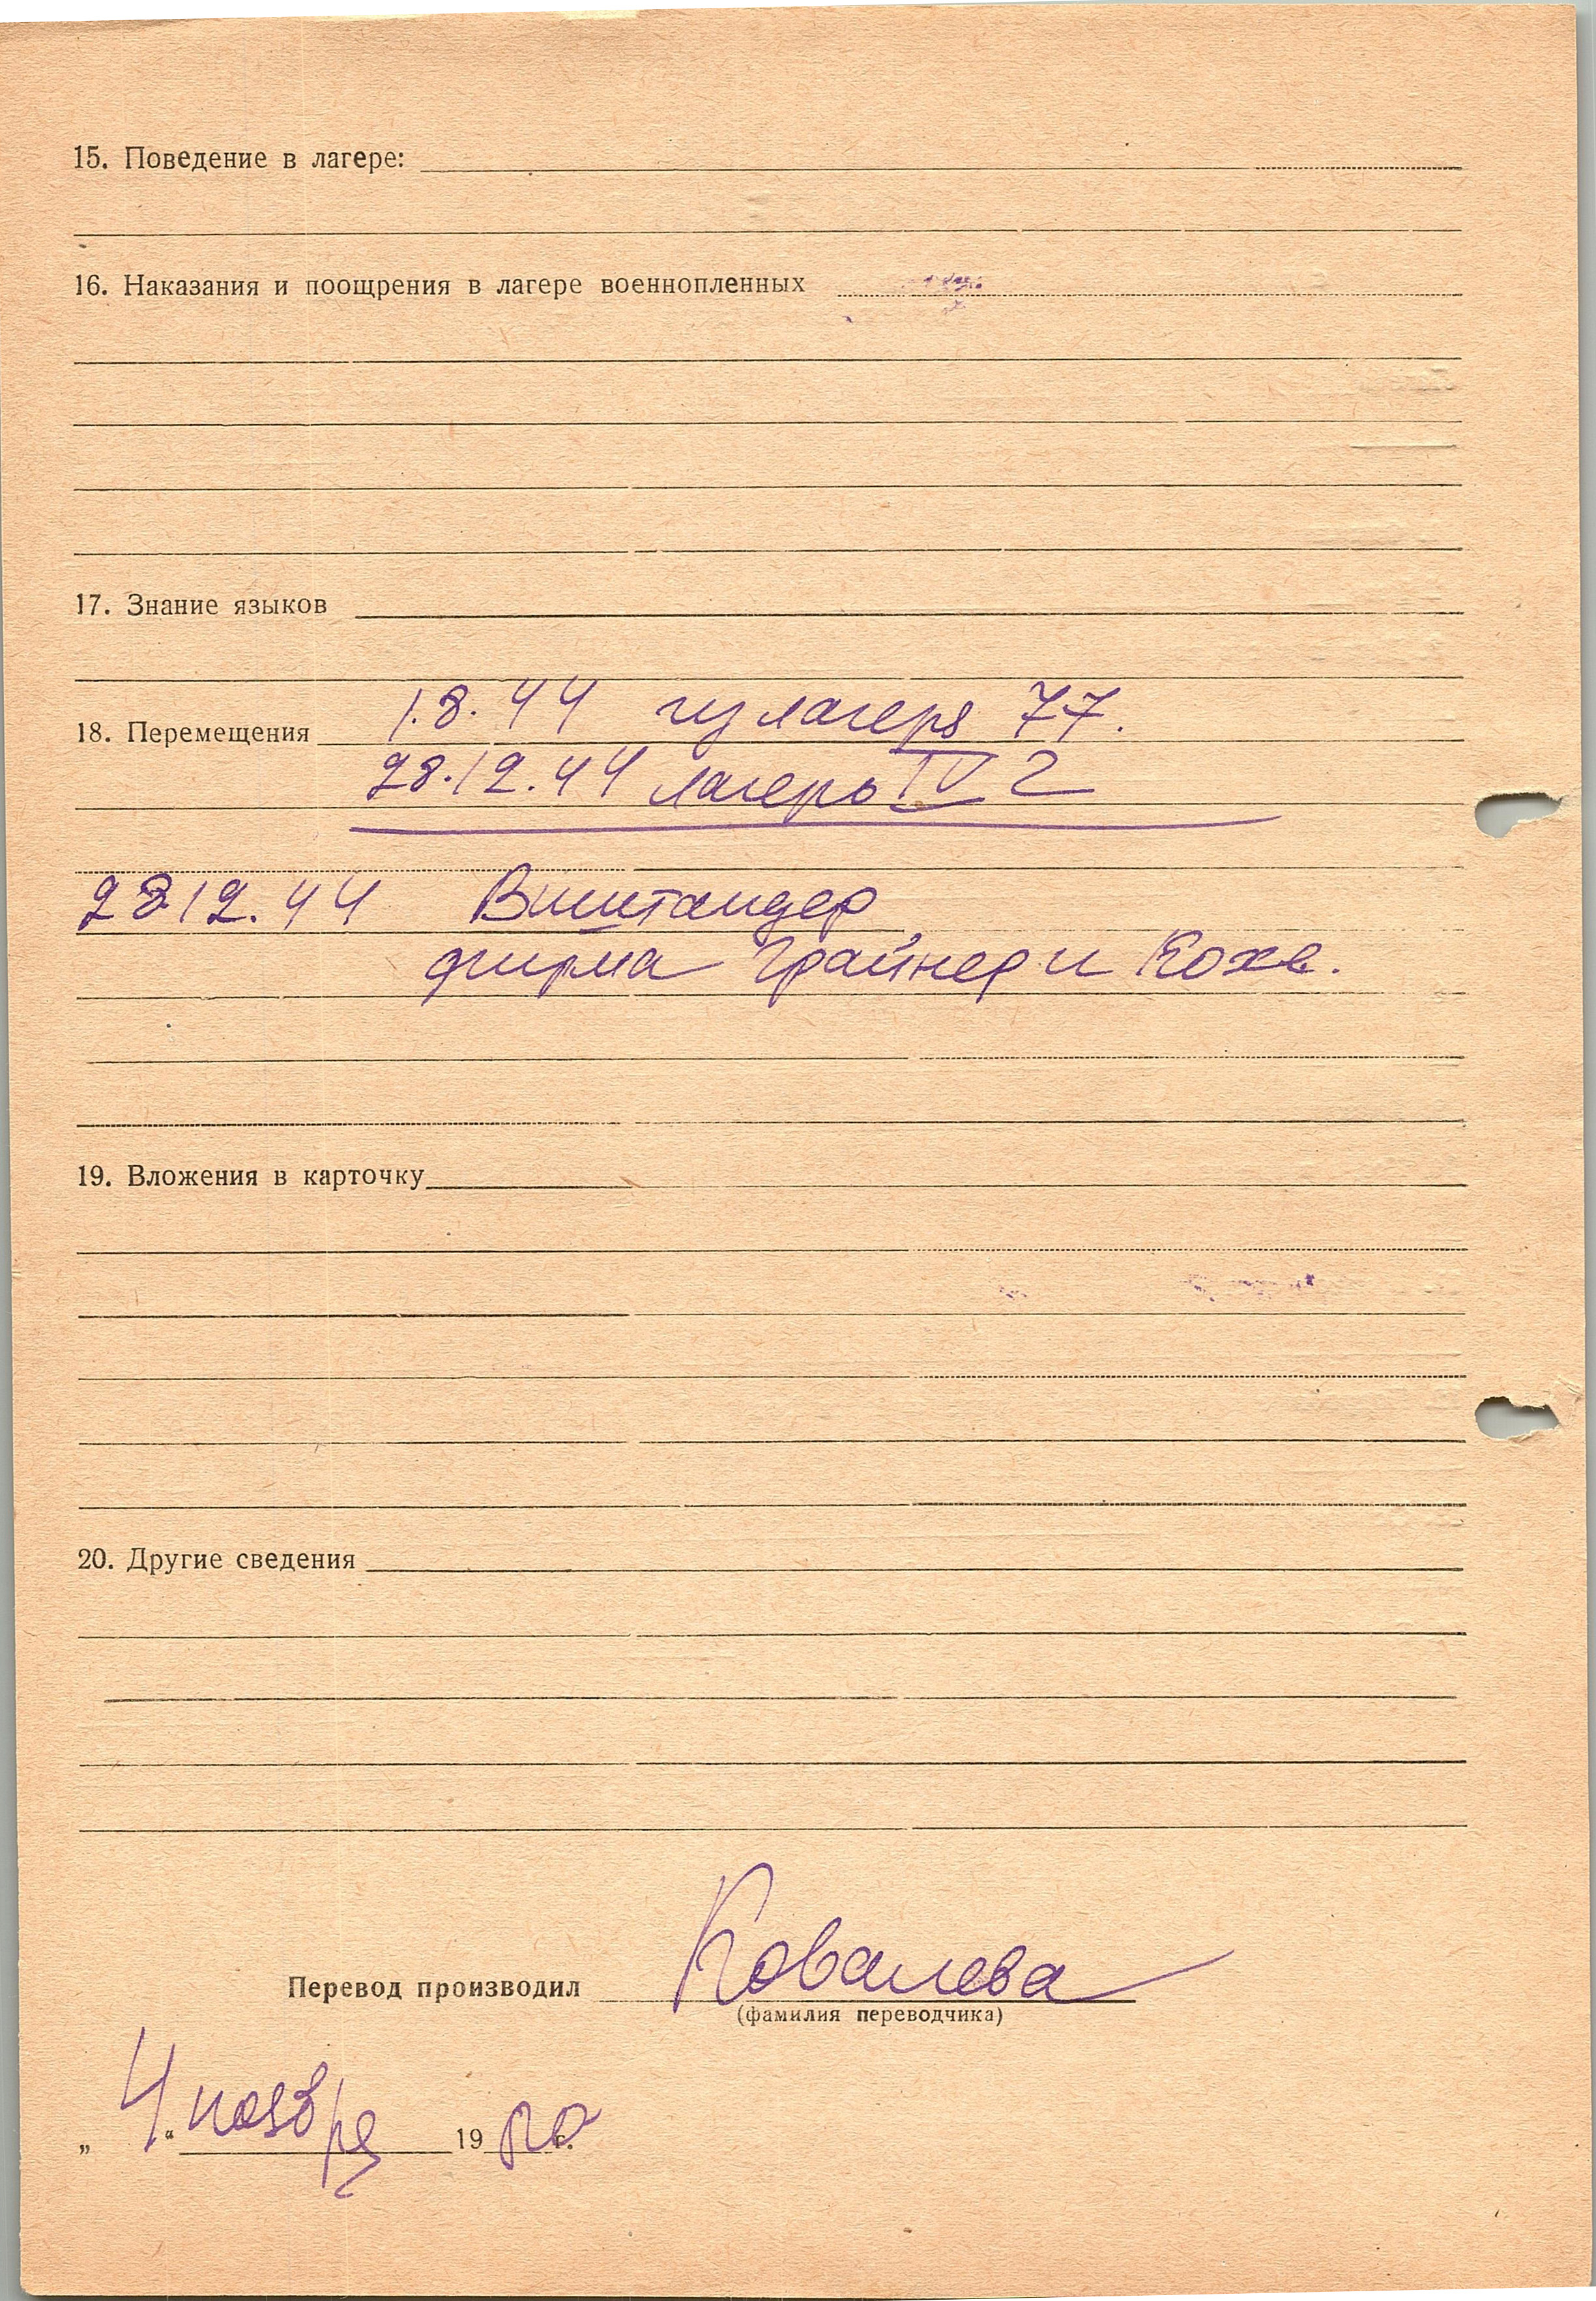 15. Поведение в лагере:
16. Наказания и поощрения в лагере военнопленных
17. Знание языков
18. Перемещения 1.8.44 из лагеря 77.
28.12.44 лагерь IV Г
28 12.44 Виштандер
фирма Грайнер и Кохе.
19. Вложения в карточку
20. Другие сведения
Перевод производил Ковалева
(фамилия переводчика)
„ 4 “ ноября 19 г.